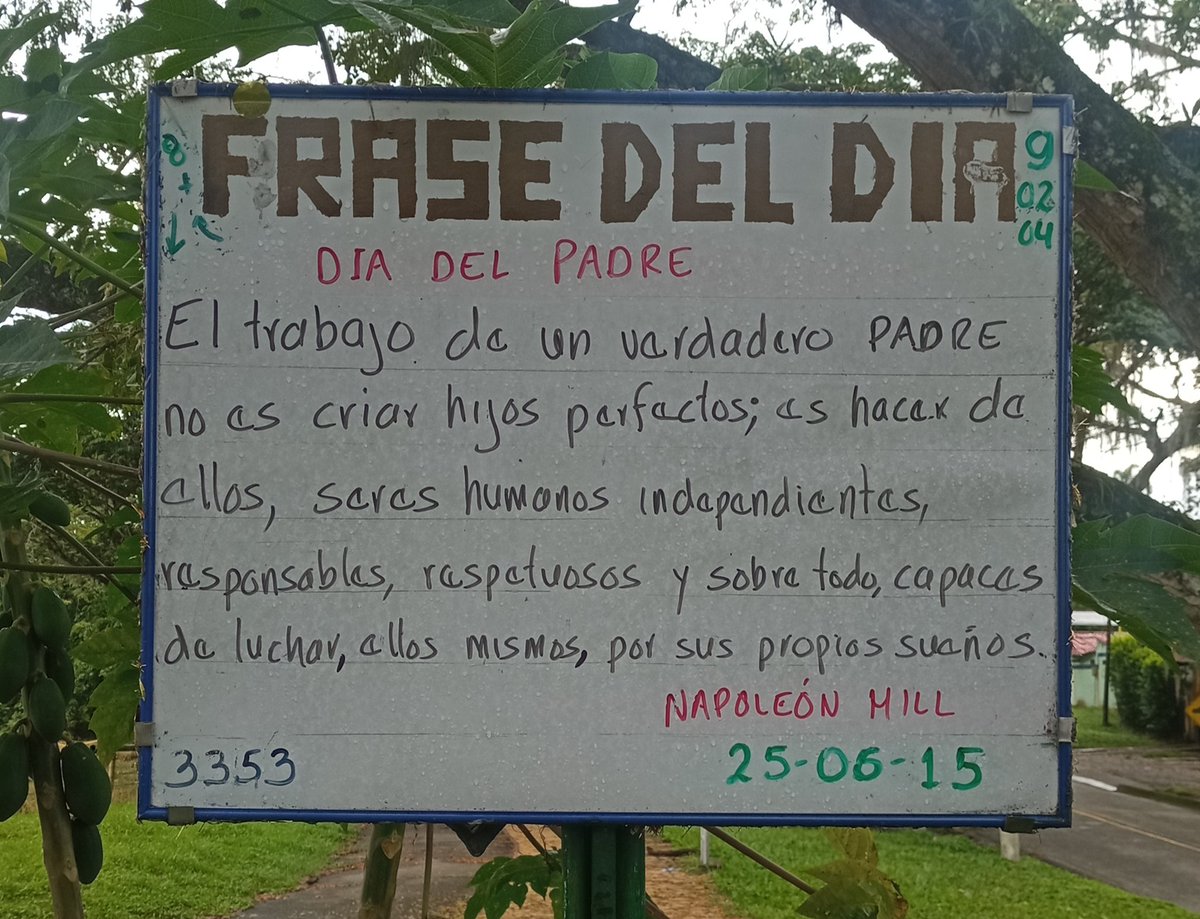 FRASE DEL DIA
8
+
9
02
04
DIA DEL PADRE
El trabajo de un verdadero PADRE
no es criar hijos perfectos; es hacer de
ellos, seres humanos independientes,
responsables, respetuosos y sobre todo, capaces
de luchar, ellos mismos, por sus propios sueños.
NAPOLEÓN HILL
3353
25-06-15